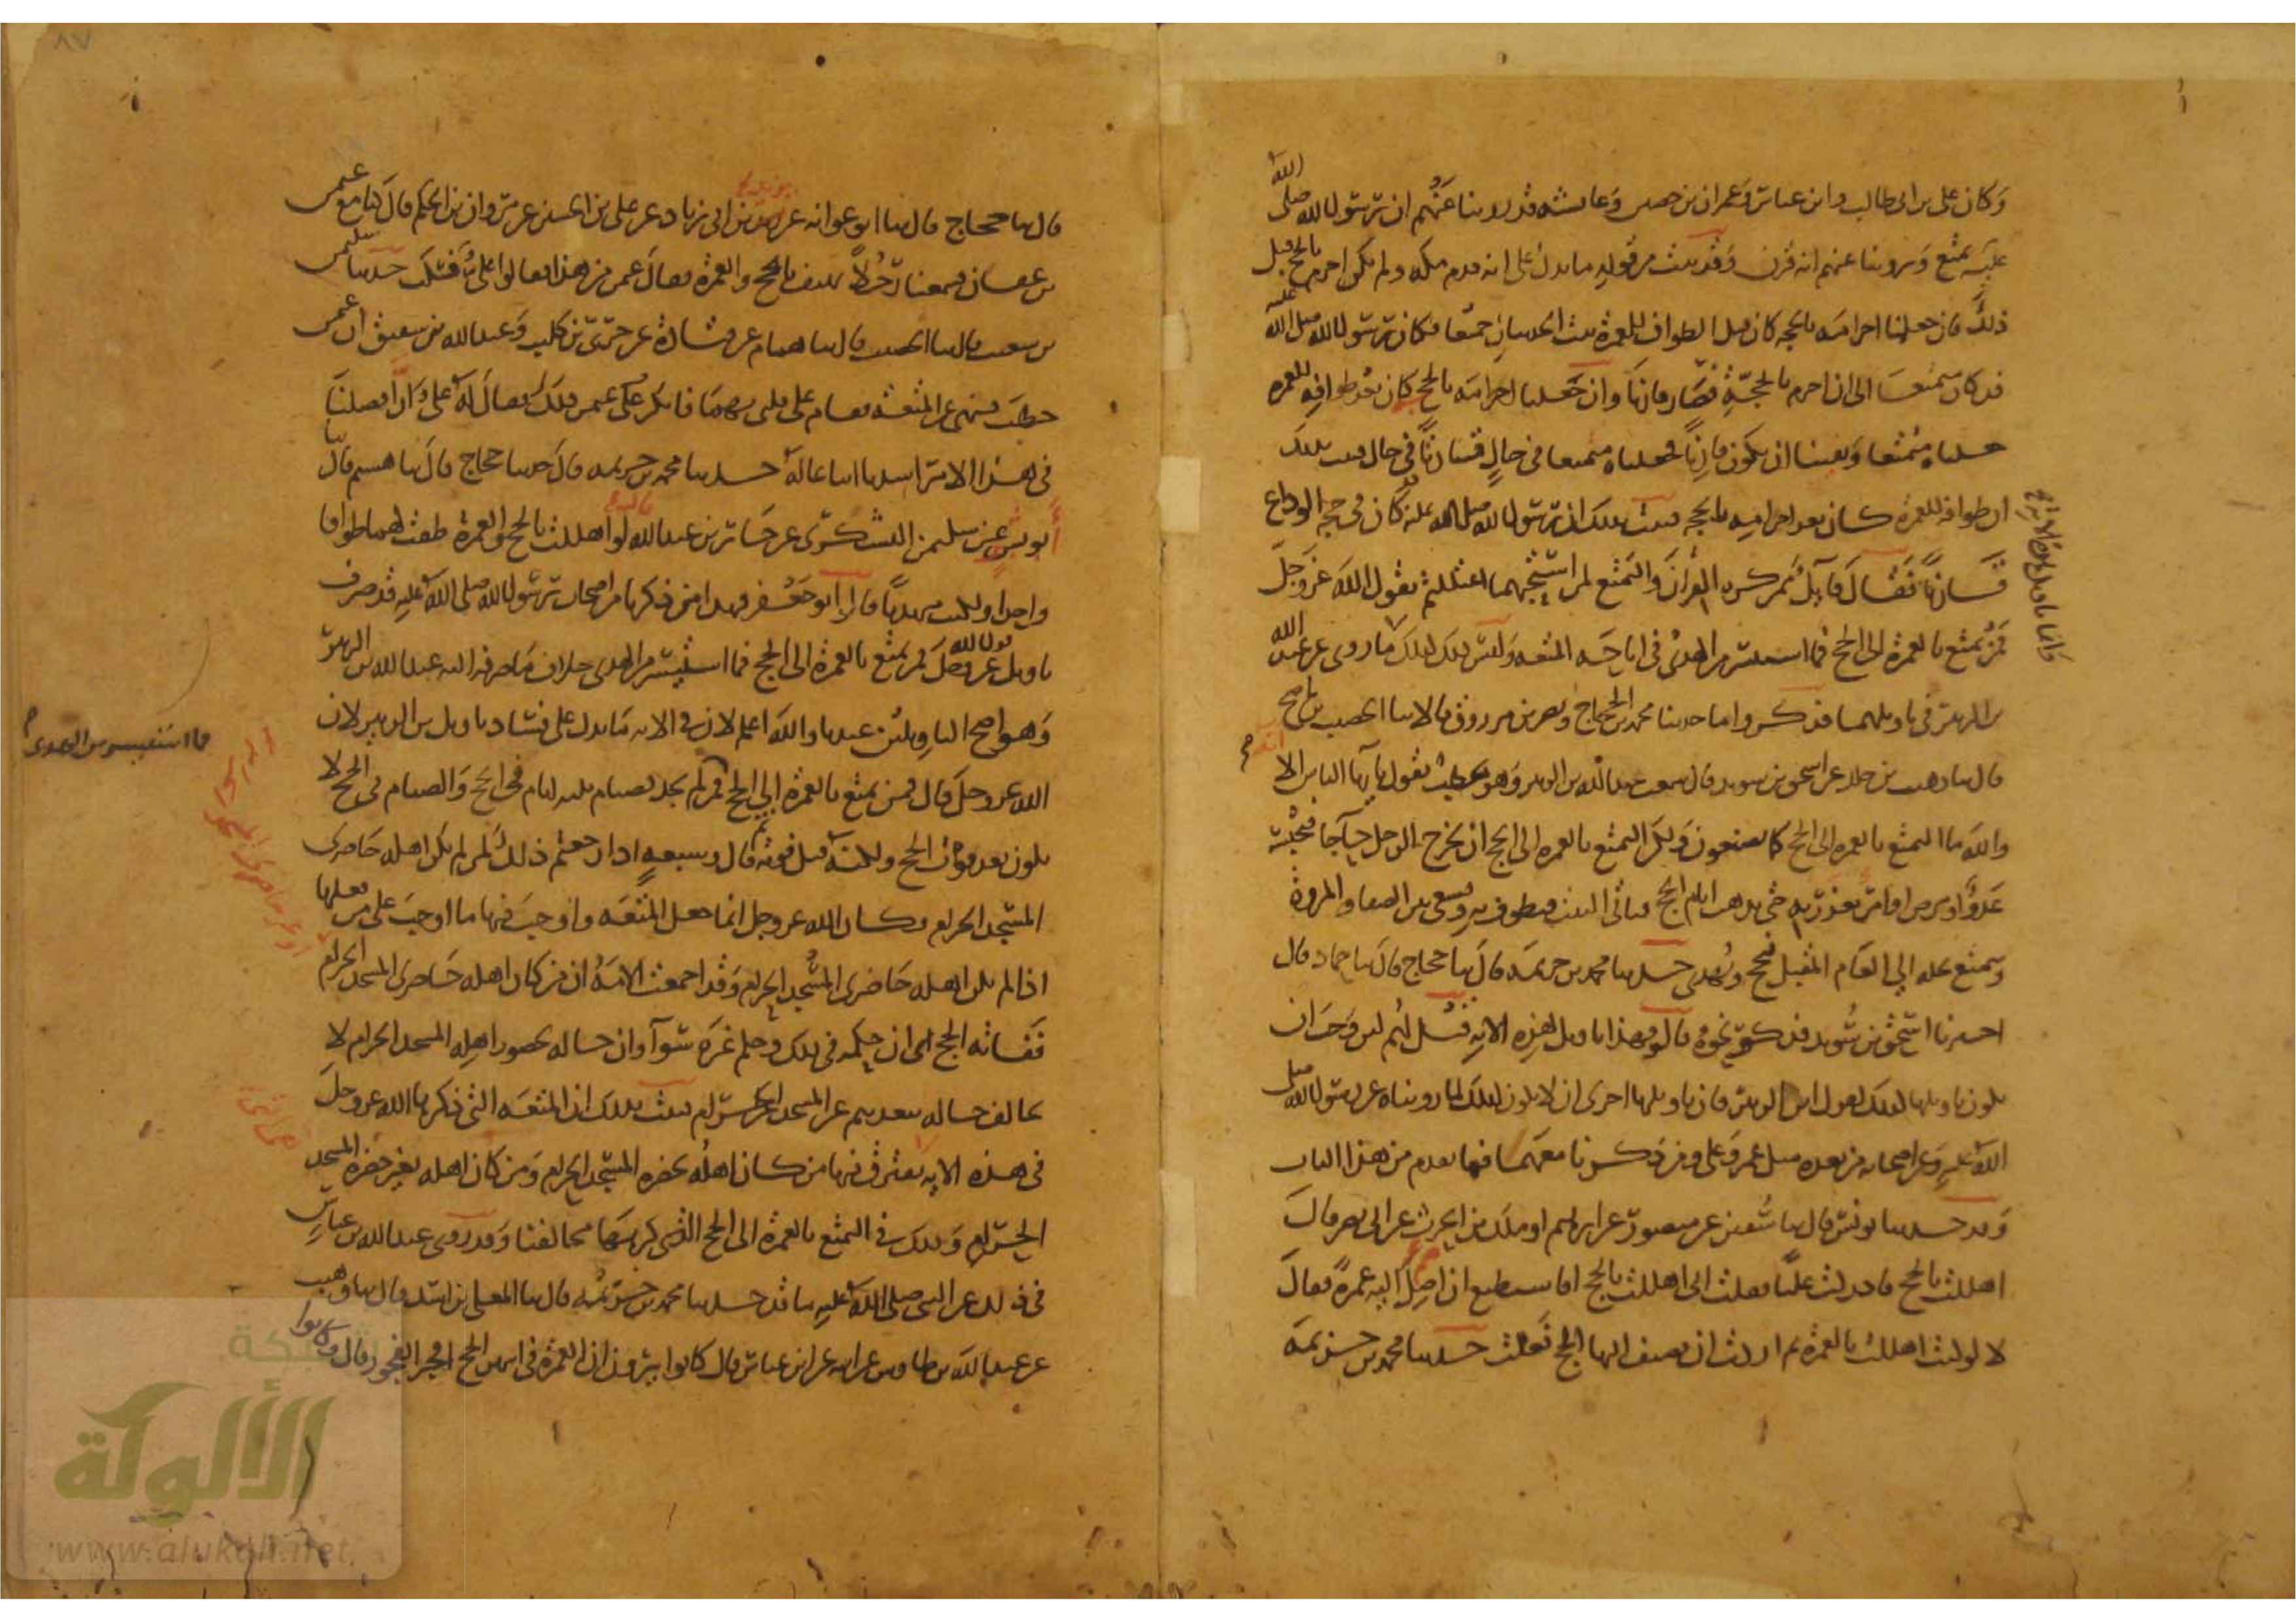 وكان علي بن ابي طالب وابن عباس وعمران بن حصين وعائشة قد روينا عنهم ان رسول الله صلى الله
عليه تمتع وروينا عنهم انه قرن وقد ثبت من قوله ما يدل على انه قدم مكة ولم يكن احرم بالحج قبل
ذلك فان جعلنا احرامه بالحجة كان قبل الطواف للعمرة ثبت الحديثان جميعا فكان رسول الله صلى الله عليه
قد كان متمتعا الى ان احرم بالحجة فصار قارنا وان جعلنا احرامه بالحج كان بعد طوافه للعمرة
جعلناه متمتعا ونفينا ان يكون قارنا فجعلناه متمتعا في حال قارنا في حال فثبت بذلك
ان طوافه للعمرة كان بعد احرامه بالحجة فثبت بذلك ان رسول الله صلى الله عليه قد كان في حجة الوداع
قارنا فقال قائل ممن كره القران والتمتع لمن استحبهما اعتللتم بقول الله عز وجل
فمن تمتع بالعمرة الى الحج فما استيسر من الهدي في اباحة المتعة وليس ذلك كذلك
ما روي عن عبد الله
بن الزبير في تاويلهما فذكروا ما حدثنا محمد بن الحجاج ونصر بن مرزوق قالا ثنا الخصيب بن ناصح
قال ثنا وهيب بن خالد عن اسحق بن سويد قال سمعت عبد الله بن الزبير وهو يخطب يقول يا ايها الناس الا انه
والله ما التمتع بالعمرة الى الحج كما تصنعون ولكن التمتع بالعمرة الى الحج ان يخرج الرجل حاجا فيحبسه
عدو او مرض او امر يعذر به حتى يذهب ايام الحج فياتي البيت فيطوف به ويسعى بين الصفا والمروة
ويتمتع بحله الى العام المقبل فيحج ويهدي حدثنا محمد بن خزيمة قال ثنا حجاج قال ثنا حماد قال
اخبرنا اسحق بن سويد فذكر نحوه قالوا فهذا تاويل هذه الاية قيل لهم لئن وجب ان
يكون تاويلها كذلك لقول ابن الزبير فان تاويلها احرى ان لا يكون كذلك لما رويناه عن رسول الله صلى
الله عليه وعن اصحابه من بعده مثل عمر وعلي ومن ذكرنا معهما فيما تقدم من هذا الباب
وقد حدثنا يونس قال ثنا سفين عن منصور عن ابراهيم او ملك بن الحرث عن ابي نصر قال
اهللت بالحج فادركت عليا فقلت اني اهللت بالحج افاستطيع ان اضيف اليه عمرة فقال
لا لو كنت اهللت بالعمرة ثم اردت ان تضيف اليها الحج فعلت حدثنا محمد بن خزيمة
قال ثنا حجاج قال ثنا ابو عوانه عن يزيد بن ابي زياد عن علي بن الحسين عن مروان بن الحكم قال كنا مع عثمن
بن عفان فسمعنا رجلا يهتف بالحج والعمرة فقال عثمن من هذا فقالوا علي فسكت حدثنا سليمن
بن شعيب قال ثنا الخصيب قال ثنا همام عن قتادة عن جري بن كليب وعبد الله بن شقيق ان عثمن
خطب فنهى عن المتعة فقام علي فلبى بهما فانكر عثمن ذلك فقال له علي
في هذا الامر حدثنا محمد بن خزيمة قال حدثنا حجاج قال ثنا هشيم قال ثنا
ابو بشر عن سليمن اليشكري عن جابر بن عبد الله قال لو اهللت بالحج والعمرة طفت لهما طوافا
واحدا ولكنت مهديا قال ابو جعفر فهذا من ذكرنا من اصحاب رسول الله صلى الله عليه قد صرف
تاويل قول الله عز وجل فمن تمتع بالعمرة الى الحج فما استيسر من الهدي خلاف ما صرفه اليه عبد الله بن الزبير
وهو اصح التاويلين عندنا والله اعلم لان في الاية ما يدل على فساد تاويل بن الزبير لان
الله عز وجل قال فمن تمتع بالعمرة الى الحج فمن لم يجد فصيام ثلثة ايام في الحج والصيام في الحج لا
يكون بعد فوات الحج ولكنه قبل فوته ثم قال وسبعة اذا رجعتم ذلك لمن لم يكن اهله حاضري
المسجد الحرام فكان الله عز وجل انما جعل المتعة واوجب فيها ما اوجب على من فعلها
اذا لم يكن اهله حاضري المسجد الحرام وقد اجمعت الامة ان من كان اهله حاضري المسجد الحرام
ففاته الحج ان حكمه في ذلك وحكم غيره سواء وان حاله بحضور اهله المسجد الحرام لا
تخالف حاله ببعدهم عن المسجد الحرام فثبت بذلك ان المتعة التي ذكرها الله عز وجل
في هذه الاية يفترق فيها من كان اهله بحضرة المسجد الحرام ومن كان اهله بغير حضرة المسجد
الحرام وذلك في التمتع بالعمرة الى الحج الذي كرهها مخالفنا وقد روي عبد الله بن عباس
في ذلك عن النبي صلى الله عليه ما قد حدثنا محمد بن خزيمة قال ثنا المعلى بن اسد قال ثنا وهيب
عن عبد الله بن طاوس عن ابيه عن ابن عباس قال كانوا يرون ان العمرة في اشهر الحج افجر الفجور قال وكانوا
فما استيسر من الهدي
شبكة
الألوكة
www.alukah.net